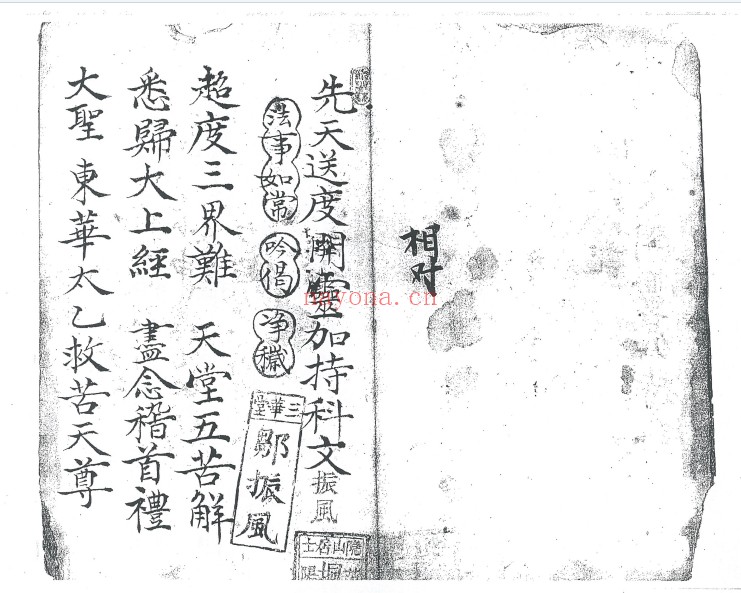 相对
先天送度開靈加持科文
振風
法事如常 吟偈 净穢
三華堂
鄒振風
超度三界難 天堂五苦解
悉歸大上經 盡念稽首禮
大聖東華太乙救苦天尊
nayona.cn